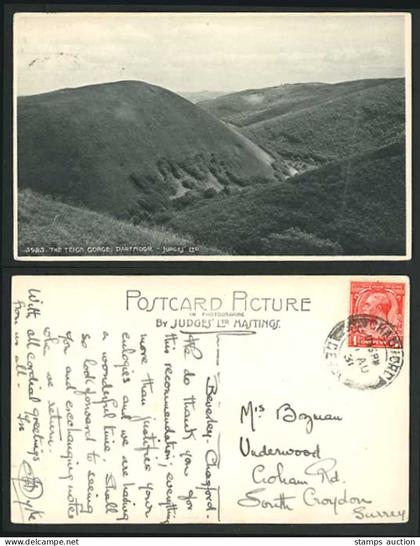 3983. THE TEIGN GORGE, DARTMOOR. - JUDGES' LTD
POSTCARD PICTURE
IN PHOTOGRAVURE
BY JUDGES' LTD HASTINGS.
Beverley. Chagford.
We do thank you for
this recommendation; everything
more than justifies your
eulogies and we are having
a wonderful time. Shall
so look forward to seeing
you and exchanging notes
when we return.
With all cordial greetings
from us all -
Mrs Bozman
Underwood
Croham Rd.
South Croydon
Surrey
CHAGFORD
AU
31
ONE PENNY
www.stamps-dz.com